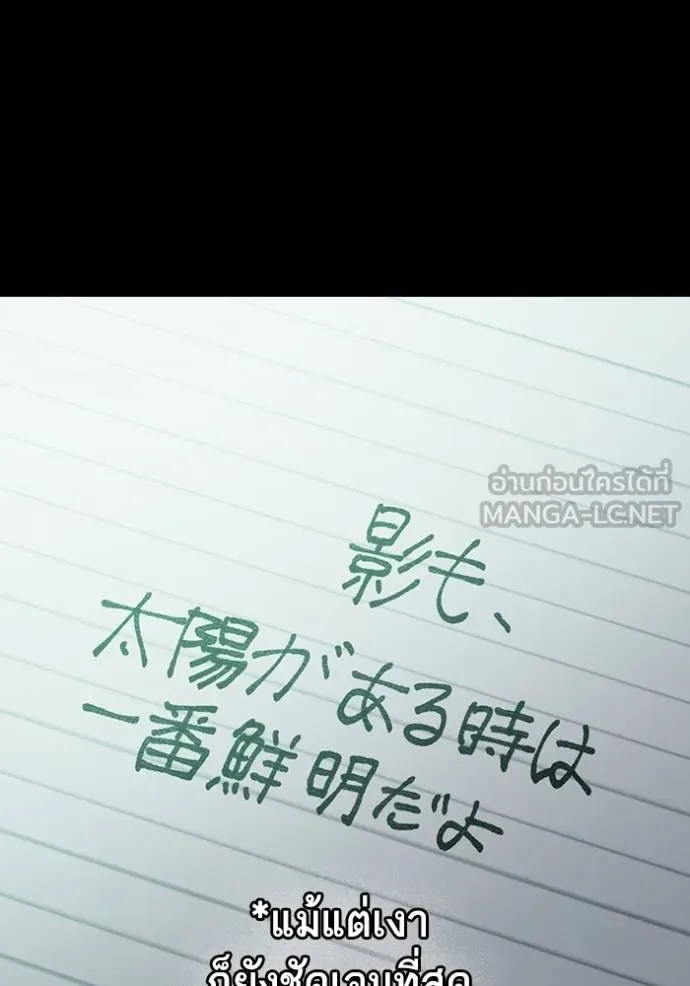 อ่านก่อนใครได้ที่
MANGA-LC.NET
影も、
太陽がある時は
一番鮮明だよ
*แม้แต่เงา
ก็ยังชัดเจนที่สุด